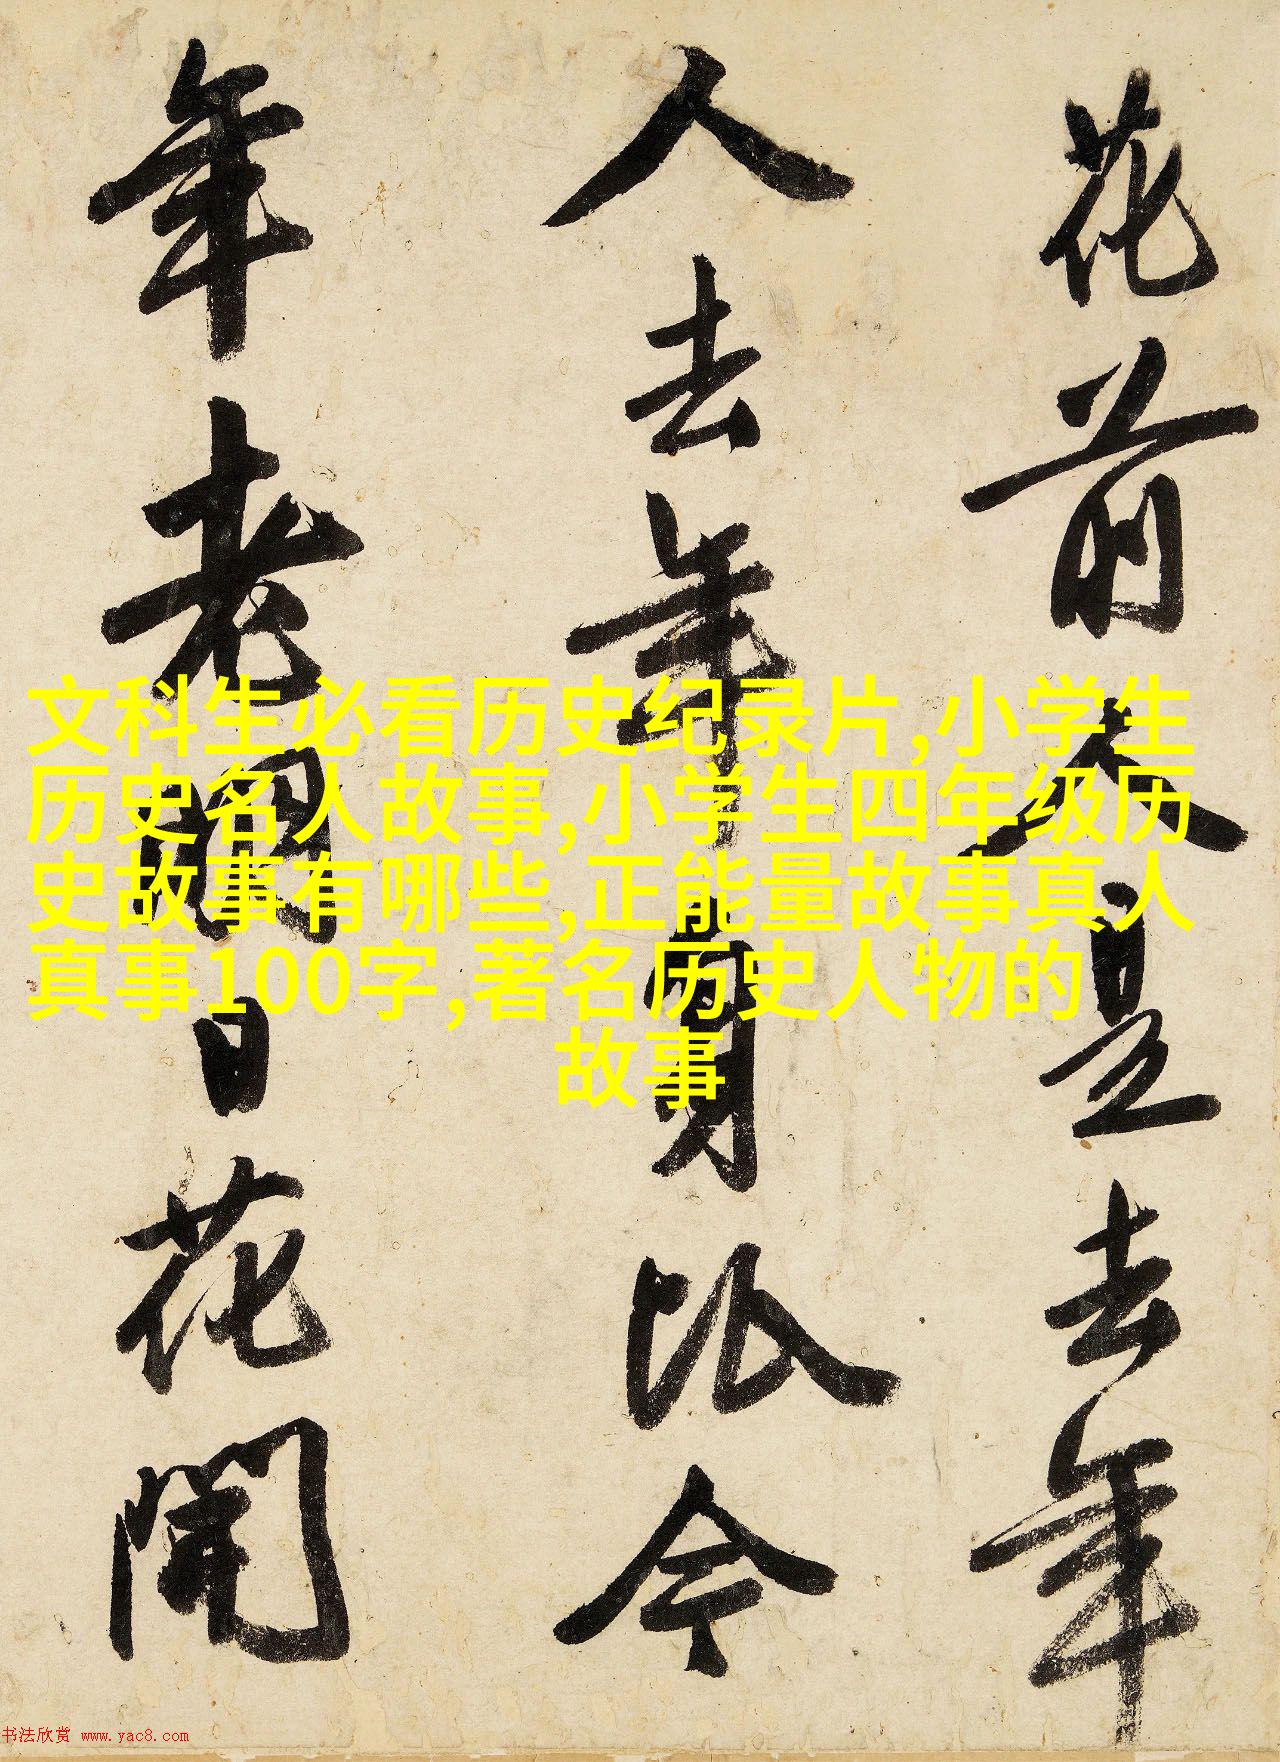 花前人是去年
人去年身比今
年老日花開
文科生必看历史纪录片,小学生
历史名人故事,小学生四年级历
史故事有哪些,正能量故事真人
真事100字,著名历史人物的
故事
书法欣赏 www.yac8.com